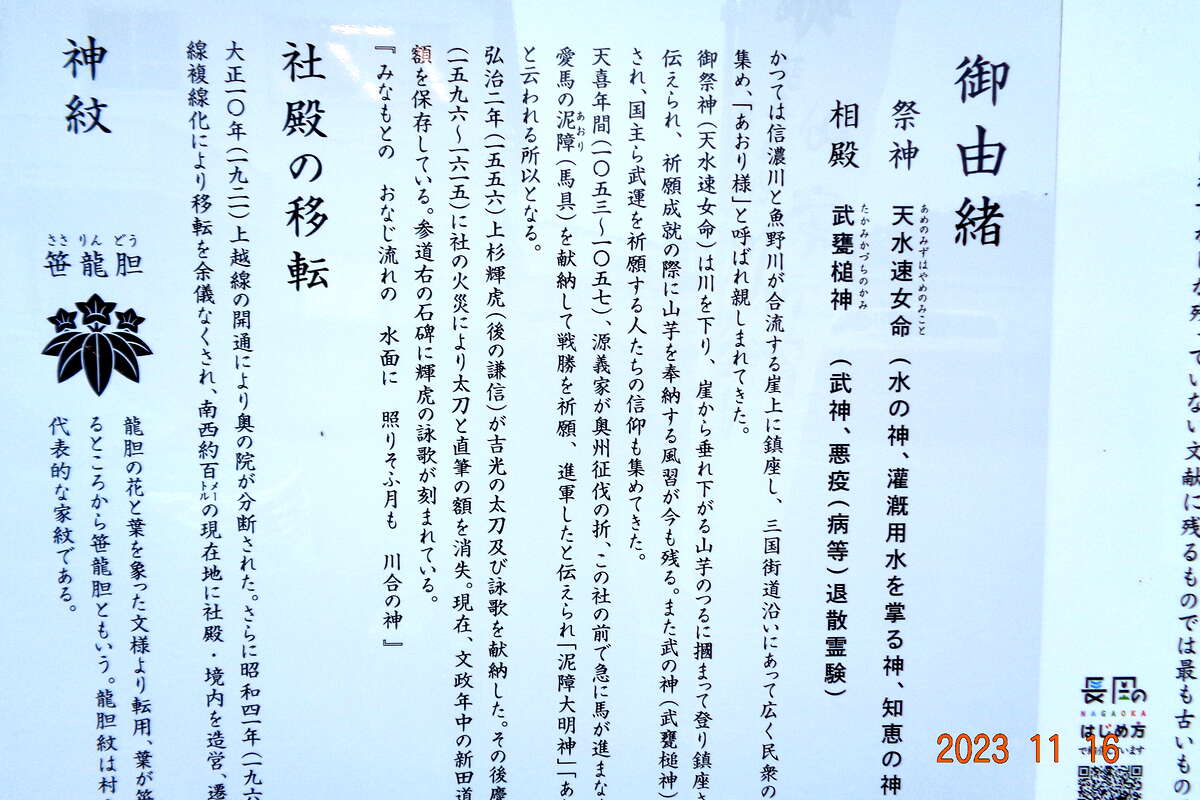 御由緒
祭神 天水速女命 (水の神、灌漑用水を掌る神、知恵の神
あめのみずはやめのみこと
相殿 武甕槌神 (武神、悪疫(病等)退散霊験)
たかみかづちのかみ
かつては信濃川と魚野川が合流する崖上に鎮座し、三国街道沿いにあって広く民衆の
集め、「あおり様」と呼ばれ親しまれてきた。
御祭神(天水速女命)は川を下り、崖から垂れ下がる山芋のつるに摑まって登り鎮座さ
伝えられ、祈願成就の際に山芋を奉納する風習が今も残る。また武の神(武甕槌神)
され、国主ら武運を祈願する人たちの信仰も集めてきた。
天喜年間(一〇五三〜一〇五七)、源義家が奥州征伐の折、この社の前で急に馬が進まな
愛馬の泥障(馬具)を献納して戦勝を祈願、進軍したと伝えられ「泥障大明神」「あ
あおり
と云われる所以となる。
弘治二年(一五五六)上杉輝虎(後の謙信)が吉光の太刀及び詠歌を献納した。その後慶
(一五九六〜一六一五)に社の火災により太刀と直筆の額を消失。現在、文政年中の新田道
額を保存している。参道右の石碑に輝虎の詠歌が刻まれている。
『みなもとの おなじ流れの 水面に 照りそふ月も 川合の神』
社殿の移転
大正一〇年(一九二一)上越線の開通により奥の院が分断された。さらに昭和四一年(一九六
線複線化により移転を余儀なくされ、南西約百メートルの現在地に社殿・境内を造営、遷
神紋
笹龍胆
ささ りん どう
龍胆の花と葉を象った文様より転用、葉が笹
るところから笹龍胆ともいう。龍胆紋は村
代表的な家紋である。
ていない文献に残るものでは最も古いもの
長岡の
NAGAOKA
はじめ方
2023 11 16